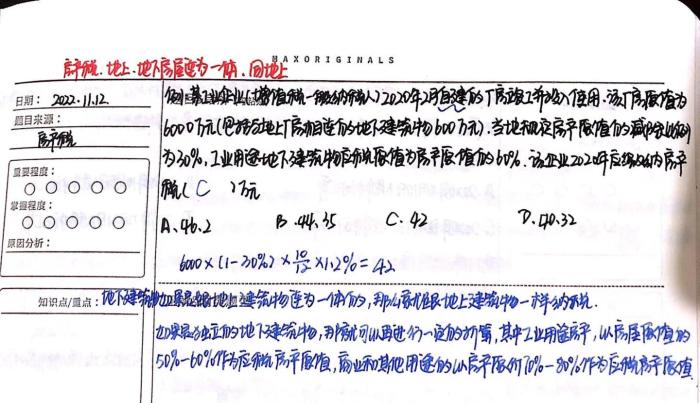 MAXORIGINALS
房产税. 地上. 地下房屋连为一体. 同地上
日期： 2022.11.12
题目来源：
房产税
重要程度：
掌握程度：
原因分析：
例1.某工业企业(增值税一般纳税人)2020年2月自建的厂房竣工并投入使用.该厂房原值为
6000万元(包括与地上厂房相连的地下建筑物600万元).当地规定房产原值的减除比例
为30%,工业用途地下建筑物应税原值为房产原值的60%.该企业2020年应缴纳房产
税( C )万元
A.46.2
B.44.35
C.42
D.40.32
6000×(1-30%)×10/12×1.2%=42
知识点/重点：
地下建筑物如果是跟地上建筑物连为一体的,那么就跟地上建筑物一样纳税.
如果是独立的地下建筑物,那就可以再进行一定的折算,其中工业用途房产,以房屋原价的
50%-60%作为应税房产原值,商业和其他用途的以房产原价70%-80%作为应税房产原值